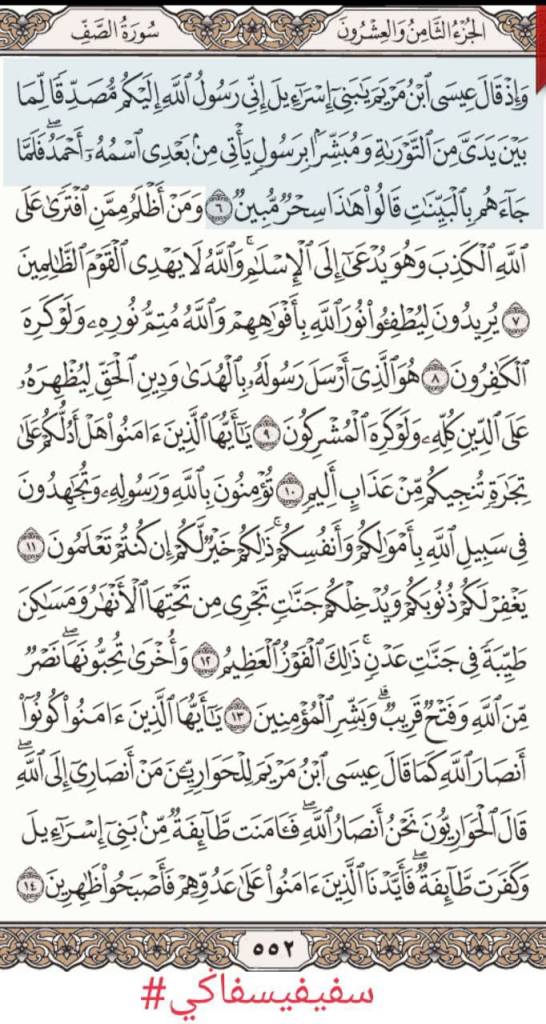 الجُزْءُ الثَّامِنُ وَالعِشْرُونَ
سُورَةُ الصَّفِّ
وَإِذْ قَالَ عِيسَى ٱبْنُ مَرْيَمَ يَٰبَنِىٓ إِسْرَٰٓءِيلَ إِنِّى رَسُولُ ٱللَّهِ إِلَيْكُم مُّصَدِّقًا لِّمَا
بَيْنَ يَدَىَّ مِنَ ٱلتَّوْرَىٰةِ وَمُبَشِّرًۢا بِرَسُولٍ يَأْتِى مِنۢ بَعْدِى ٱسْمُهُۥٓ أَحْمَدُۖ فَلَمَّا
جَآءَهُم بِٱلْبَيِّنَٰتِ قَالُوا۟ هَٰذَا سِحْرٌ مُّبِينٌ ٦ وَمَنْ أَظْلَمُ مِمَّنِ ٱفْتَرَىٰ عَلَى
ٱللَّهِ ٱلْكَذِبَ وَهُوَ يُدْعَىٰٓ إِلَى ٱلْإِسْلَٰمِۚ وَٱللَّهُ لَا يَهْدِى ٱلْقَوْمَ ٱلظَّٰلِمِينَ
٧ يُرِيدُونَ لِيُطْفِـُٔوا۟ نُورَ ٱللَّهِ بِأَفْوَٰهِهِمْ وَٱللَّهُ مُتِمُّ نُورِهِۦ وَلَوْ كَرِهَ
ٱلْكَٰفِرُونَ ٨ هُوَ ٱلَّذِىٓ أَرْسَلَ رَسُولَهُۥ بِٱلْهُدَىٰ وَدِينِ ٱلْحَقِّ لِيُظْهِرَهُۥ
عَلَى ٱلدِّينِ كُلِّهِۦ وَلَوْ كَرِهَ ٱلْمُشْرِكُونَ ٩ يَٰٓأَيُّهَا ٱلَّذِينَ ءَامَنُوا۟ هَلْ أَدُلُّكُمْ عَلَىٰ
تِجَٰرَةٍ تُنجِيكُم مِّنْ عَذَابٍ أَلِيمٍ ١٠ تُؤْمِنُونَ بِٱللَّهِ وَرَسُولِهِۦ وَتُجَٰهِدُونَ
فِى سَبِيلِ ٱللَّهِ بِأَمْوَٰلِكُمْ وَأَنفُسِكُمْۚ ذَٰلِكُمْ خَيْرٌ لَّكُمْ إِن كُنتُمْ تَعْلَمُونَ ١١
يَغْفِرْ لَكُمْ ذُنُوبَكُمْ وَيُدْخِلْكُمْ جَنَّٰتٍ تَجْرِى مِن تَحْتِهَا ٱلْأَنْهَٰرُ وَمَسَٰكِنَ
طَيِّبَةً فِى جَنَّٰتِ عَدْنٍۚ ذَٰلِكَ ٱلْفَوْزُ ٱلْعَظِيمُ ١٢ وَأُخْرَىٰ تُحِبُّونَهَاۖ نَصْرٌ
مِّنَ ٱللَّهِ وَفَتْحٌ قَرِيبٌۗ وَبَشِّرِ ٱلْمُؤْمِنِينَ ١٣ يَٰٓأَيُّهَا ٱلَّذِينَ ءَامَنُوا۟ كُونُوٓا۟
أَنصَارَ ٱللَّهِ كَمَا قَالَ عِيسَى ٱبْنُ مَرْيَمَ لِلْحَوَارِيِّـۧنَ مَنْ أَنصَارِىٓ إِلَى ٱللَّهِۖ
قَالَ ٱلْحَوَارِيُّونَ نَحْنُ أَنصَارُ ٱللَّهِۖ فَـَٔامَنَت طَّآئِفَةٌ مِّنۢ بَنِىٓ إِسْرَٰٓءِيلَ
وَكَفَرَت طَّآئِفَةٌۖ فَأَيَّدْنَا ٱلَّذِينَ ءَامَنُوا۟ عَلَىٰ عَدُوِّهِمْ فَأَصْبَحُوا۟ ظَٰهِرِينَ ١٤
٥٥٢
#سفيفيسفاكي